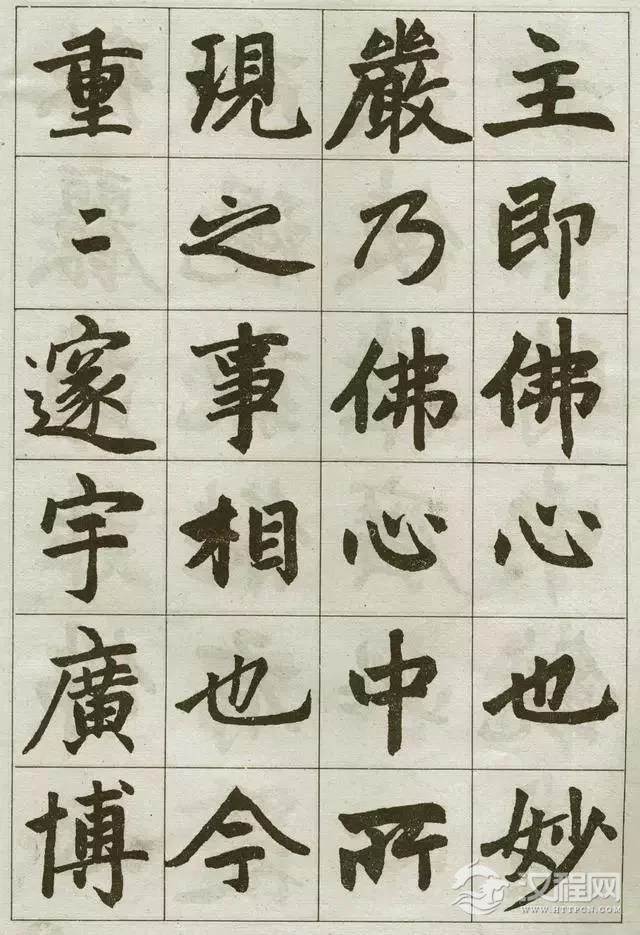 主即佛心也妙
嚴乃佛心中所
現之事相也今
重二邃宇廣博
汉程网
WWW.HTTPCN.COM